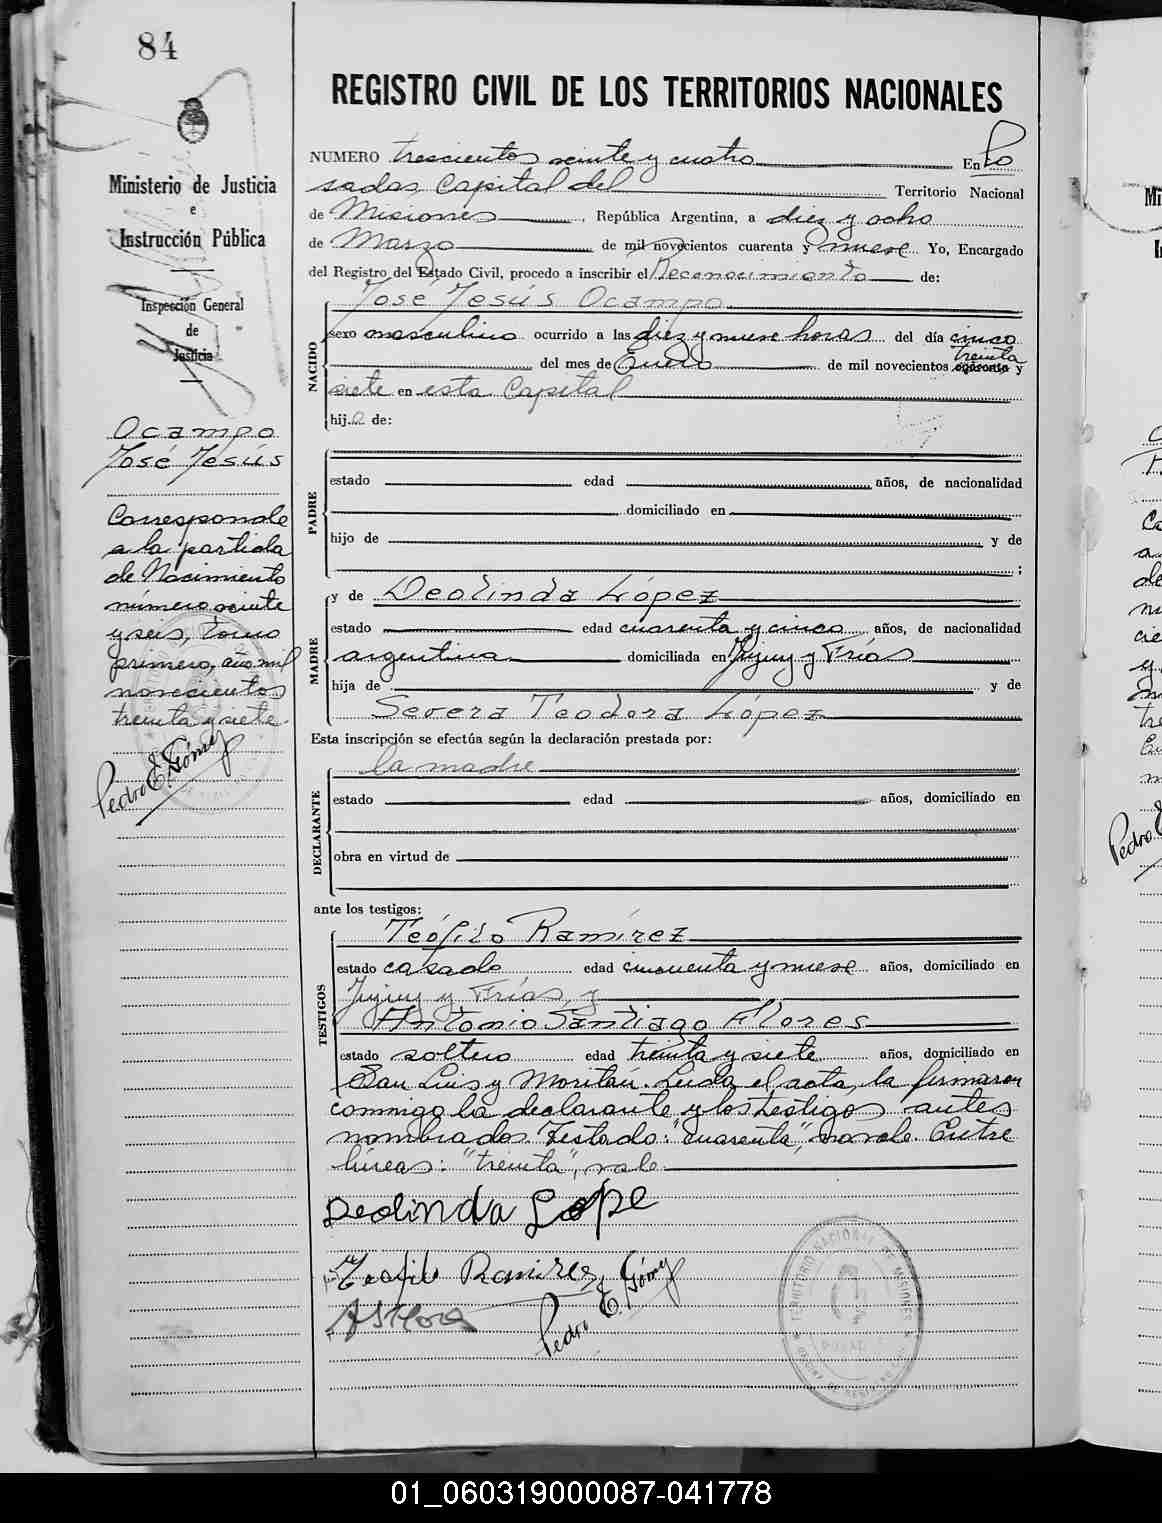 84
Ministerio de Justicia
e
Instrucción Pública
Inspección General
de
Justicia
Ocampo
José Jesús
Corresponde
a la partida
de Nacimiento
número veinte
y seis, tomo
primero, año mil
novecientos
treinta y siete.
Pedro E. Gómez
REGISTRO CIVIL DE LOS TERRITORIOS NACIONALES
NUMERO trescientos veinte y cuatro En Po
sadas, Capital del Territorio Nacional
de Misiones, República Argentina, a diez y ocho
de Marzo de mil novecientos cuarenta y nueve Yo, Encargado
del Registro del Estado Civil, procedo a inscribir el Reconocimiento de:
José Jesús Ocampo
NACIDO
sexo masculino ocurrido a las diez y nueve horas del día cinco
treinta
del mes de Enero de mil novecientos cuarenta y
siete en esta Capital
hijo de:
PADRE
estado edad años, de nacionalidad
domiciliado en
hijo de y de
;
MADRE
y de Deolinda López
estado edad cuarenta y cinco años, de nacionalidad
argentina domiciliada en Jujuy y Frías
hija de y de
Severa Teodora López
Esta inscripción se efectúa según la declaración prestada por:
la madre
DECLARANTE
estado edad años, domiciliado en
obra en virtud de
ante los testigos:
TESTIGOS
Teófilo Ramírez
estado casado edad cincuenta y nueve años, domiciliado en
Jujuy y Frías, y
Antonio Santiago Flores
estado soltero edad treinta y siete años, domiciliado en
San Luis y Moritán. Leída el acta, la firmaron
conmigo la declarante y los testigos antes
nombrados. Testado: "cuarenta", no vale. Entre
líneas: "treinta", vale
Deolinda Lope
Teofilo Ramirez
Pedro E. Gómez
TERRITORIO NACIONAL DE MISIONES
01_060319000087-041778